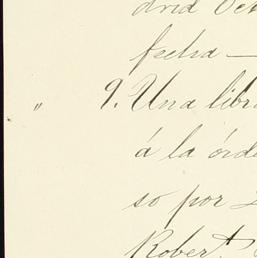 drid Oct
fecha —
" 9. Una libr
á la órde
so por
Robert